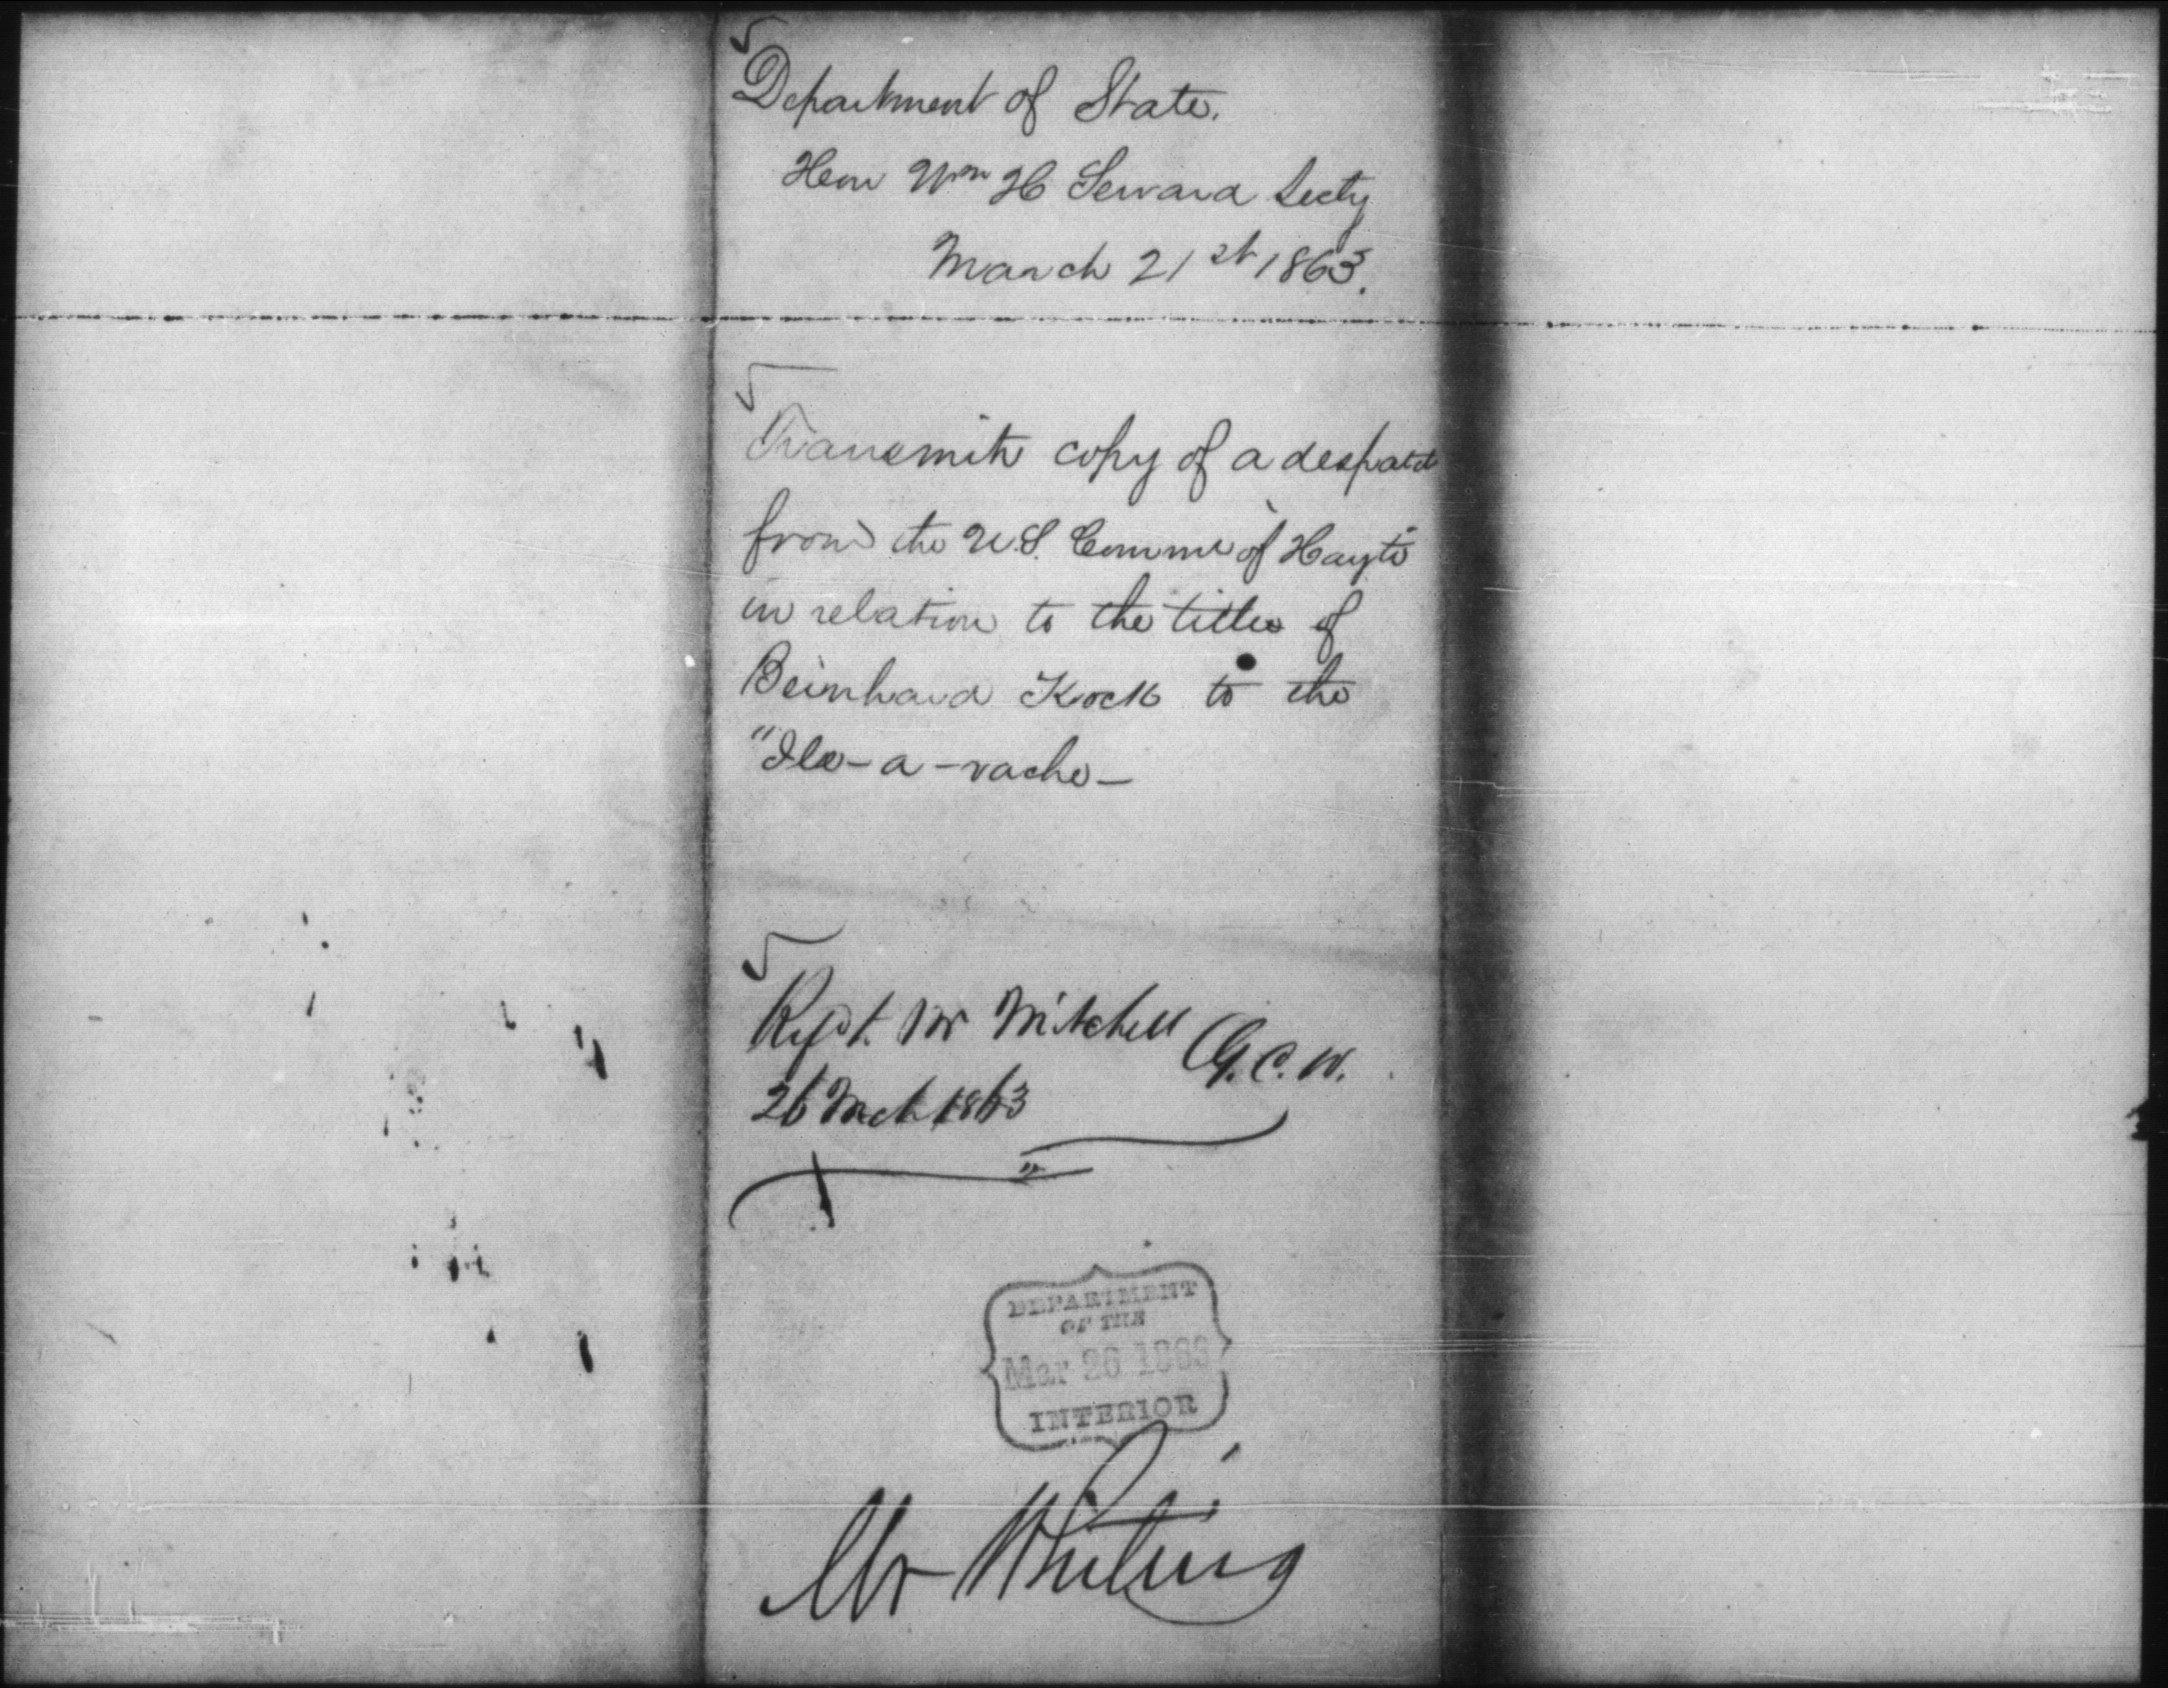 Department of State.
Hon Wm H Seward Secty
March 21st 1863.
Transmits copy of a despatch
from the U.S. Commr of Hayti
in relation to the titles of
Beinhard Kock to the
"Ile-a-vache-
Rept. Mr Mitchell
G.C.W.
26 Mch 1863
DEPARTMENT
OF THE
Mar 26 1863
INTERIOR
Mr Whiting